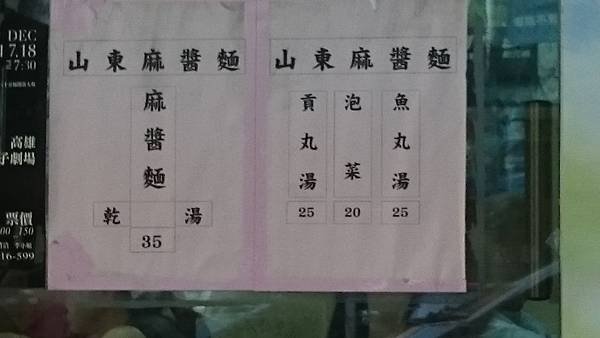 DEC
17,18
7:30
高雄
子劇場
票價
00 150
16-599
山東麻醬麵
麻醬麵
乾 湯
35
山東麻醬麵
貢丸湯
25
泡菜
20
魚丸湯
25